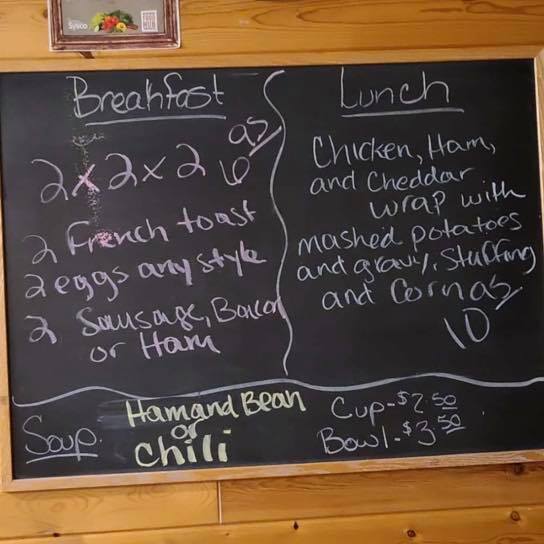 Sysco
Breakfast
2 x 2 x 2 6 25
2 French toast
2 eggs any style
2 Sausage, Bacon
or Ham
Lunch
Chicken, Ham,
and Cheddar
wrap with
mashed potatoes
and gravy, Stuffing
and Corn 25
10
Soup.
Ham and Bean
or
Chili
Cup-$2 50
Bowl-$3 50